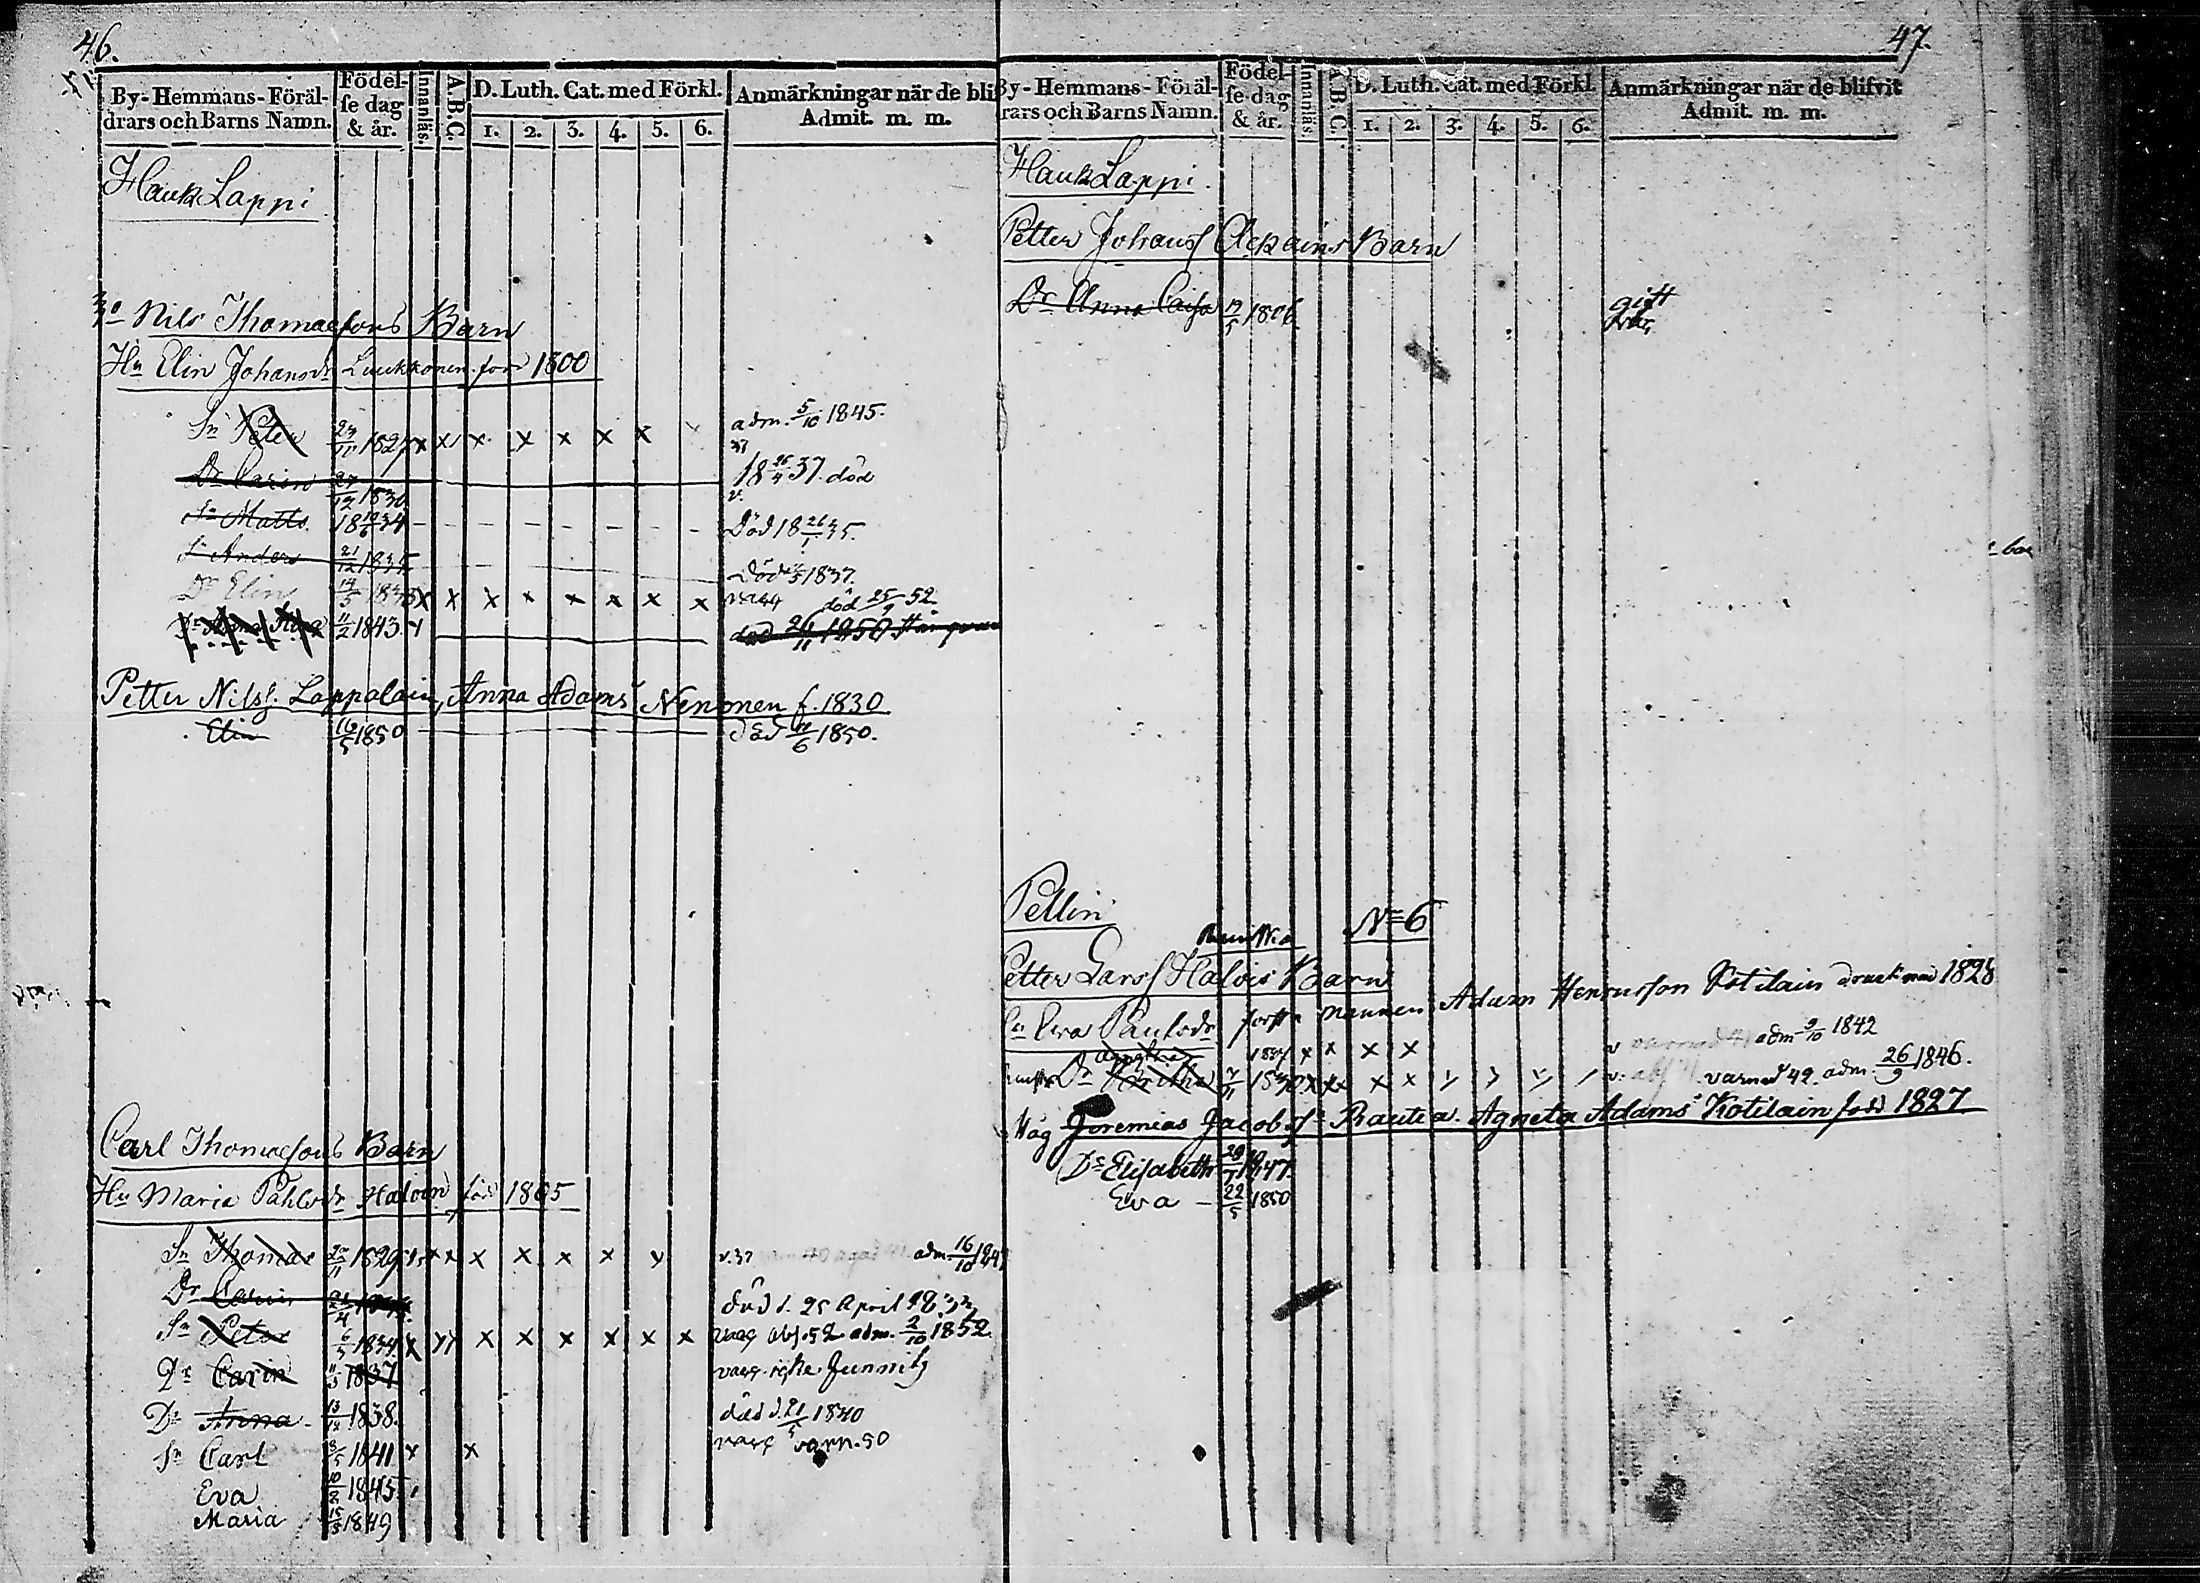 46.
By-Hemmans-Föräl-
drars och Barns Namn.
Födel-
se dag
& år.
Innanläs.
A.B.C.
D. Luth. Cat. med Förkl.
1. 2. 3. 4. 5. 6.
Anmärkningar när de bli
Admit. m. m.
Hauk Lappi
Nils Thomæsons Barn
Hu Elin Johansdr Luukkonen född 1800
Sn Peter 1827 x x x x x x x adm. 5/10 1845.
37
Dr Carin 27/12 1830 18 26/4 37. död
v.
Sn Matts 18 34 Död 18 26/1 35.
Sn Anders 21/12 1835 Död 1837.
Dr Elin 14/5 1838 x x x x x x x x död 25/9 52.
Dr Anna Stina 11/2 1843 död 24/11 1850
Petter Nilss. Lappalain, Anna Adams Nenonen f. 1830
Elin 16/5 1850 död 6 1850.
Carl Thomæsons Barn
Hu Maria Påhlsdr Haloin född 1805
Sn Thomas 1829 x x x x x x x v.37 adm. 16/10 184
Dr Carin död d. 25 April 1833
Sn Peter 6/5 1834 x x x x x x x x vacc abs. 52 adm. 2/10 1852.
Dr Carin 1837 vacc. icke funnits
Dr Anna 13/12 1838. död d. 21/5 1840
Sn Carl 3/5 1841 x x vacc varn. 50
Eva 10/2 1845
Maria 15/3 1849
47.
By-Hemmans-Föräl-
rars och Barns Namn.
Födel-
se dag
& år.
Innanläs.
A.B.C.
D. Luth. Cat. med Förkl.
1. 2. 3. 4. 5. 6.
Anmärkningar när de blifvit
Admit. m. m.
Hauk Lappi
Petter Johanss Barn
Dr Anna Caisa 1806 gift
Pellin No 6
Petter Larss Halois Barn
Eva Paulsdr första mannen Adam Henricsson Kotilain drunknad 1828
Agneta 1827 x x x x v adm 9/10 1842
Dr Britha 1830 x x x x v. varnad 42. adm. 26/9 1846.
Måg Jeremias Jacobsn Rautia. Agneta Adams Kotilain född 1827
Dr Elisabeth 1847.
Eva 22/5 1850